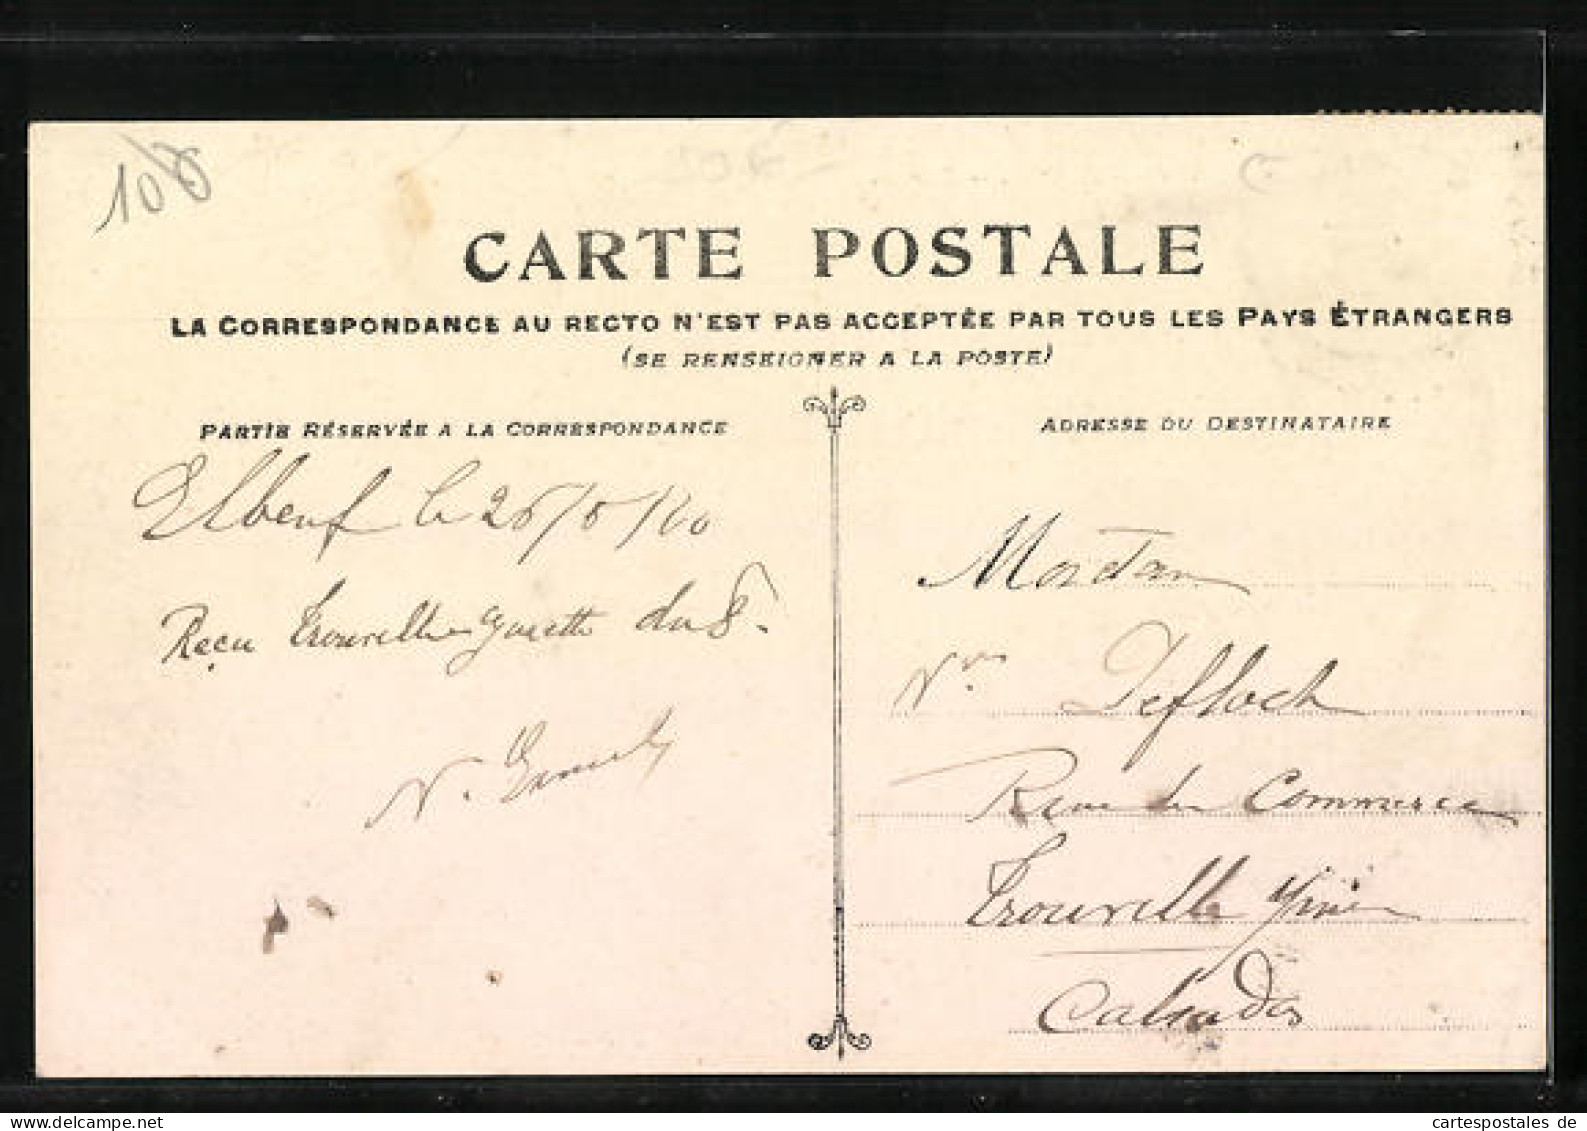 CARTE POSTALE
LA CORRESPONDANCE AU RECTO N'EST PAS ACCEPTÉE PAR TOUS LES PAYS ÉTRANGERS
(SE RENSEIGNER A LA POSTE)
PARTIE RÉSERVÉE A LA CORRESPONDANCE
Elbeuf le
Reçu Trouville gazette du 8.
ADRESSE DU DESTINATAIRE
Defloch
Rue du Commerce
Trouville
Calvados
cartespostales de